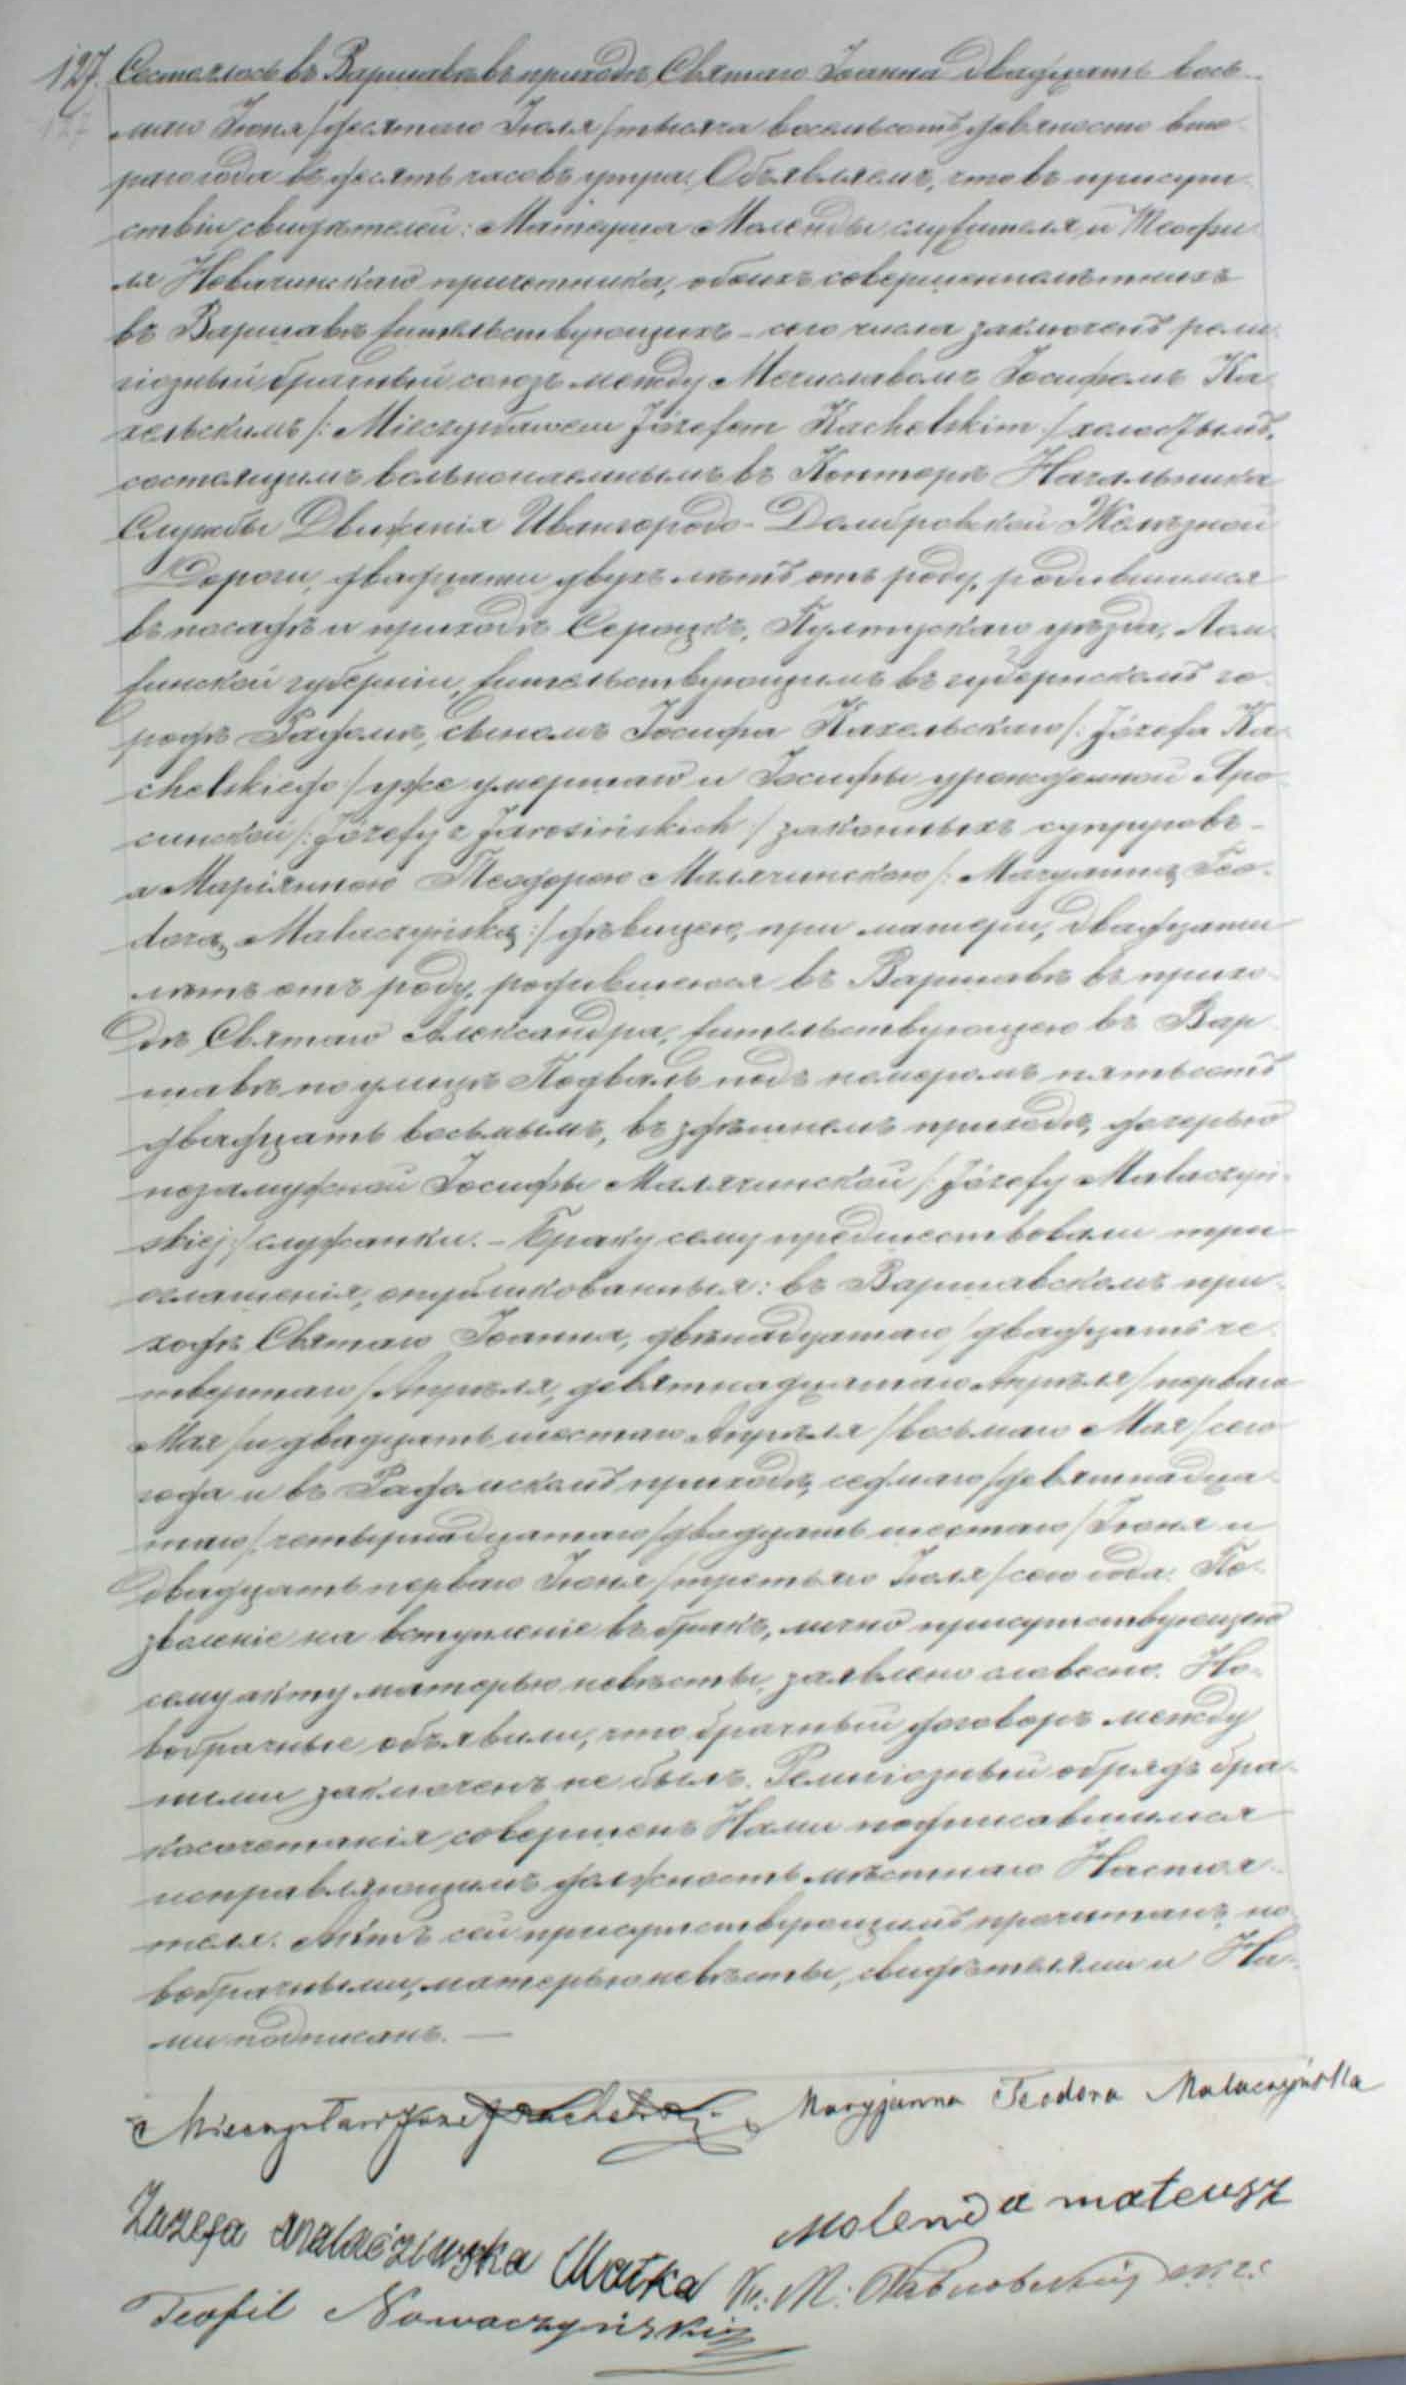 127. Состоялось въ Варшавѣ въ приходѣ Святаго Іоанна двадцать вось-
маго Іюня /десятаго Іюля/ тысяча восемьсотъ девяносто вто-
раго года въ десять часовъ утра. Объявляемъ, что въ присут-
ствіи свидѣтелей: Матеуша Моленды служителя и Теофи-
ля Новачинскаго причетника, обоихъ совершеннолѣтнихъ
въ Варшавѣ жительствующихъ – сего числа заключенъ рели-
гіозный брачный союзъ между Мечиславомъ Іосифомъ Ка-
хельскимъ /: Mieczysławem Józefem Kachelskim :/ холостымъ,
состоящимъ вольнонаемнымъ въ Конторѣ Начальника
Службы Движенія Ивангородо-Домбровской Желѣзной
Дороги, двадцати двухъ лѣтъ отъ роду, родившимся
въ посадѣ и приходѣ Сероцкъ, Пултускаго уѣзда, Лом-
жинской губерніи, жительствующимъ въ губернскомъ го-
родѣ Радомѣ, сыномъ Іосифа Кахельскаго /: Józefa Ka-
chelskiego :/ уже умершаго и Іосифы урожденной Яро-
синской /: Józefy z Jarosińskich :/ законныхъ супруговъ –
а Маріянною Теодорою Малячинскою /: Maryanną Teo-
dorą Malaczyńską :/ дѣвицею, при матери, двадцати
лѣтъ отъ роду, родившеюся въ Варшавѣ въ прихо-
дѣ Святаго Александра, жительствующею въ Вар-
шавѣ по улицѣ Подваль подъ номеромъ пятьсотъ
двадцать восьмымъ, въ здѣшнемъ приходѣ, дочерью
незамужной Іосифы Малячинской /: Józefy Malaczyń-
skiej :/ служанки. – Браку сему предшествовали три
оглашенія, опубликованныя: въ Варшавскомъ при-
ходѣ Святаго Іоанна, двѣнадцатаго /двадцать че-
твертаго/ Апрѣля, девятнадцатаго Апрѣля /перваго
Мая/ и двадцать шестаго Апрѣля /восьмаго Мая/ сего
года и въ Радомскомъ приходѣ, седьмаго /девятнадца-
таго/, четырнадцатаго /двадцать шестаго/ Іюня и
двадцать перваго Іюня /третьяго Іюля/ сего года. По-
зволеніе на вступленіе въ бракъ, лично присутствующею
сему акту матерью невѣсты, заявлено словесно. Но-
вобрачные объявили, что брачный договоръ между
ними заключенъ не былъ. Религіозный обрядъ бра-
косочетанія совершенъ Нами подписавшимся
исправляющимъ должность мѣстнаго Настоя-
теля. Актъ сей присутствующимъ прочитанъ, но-
вобрачными, матерью невѣсты, свидѣтелями и На-
ми подписанъ. —
Mieczysław Józef Kachelski. Maryjanna Teodora Malaczyńska
Malaczińska Matka Molenda Mateusz
Teofil Nowaczyński